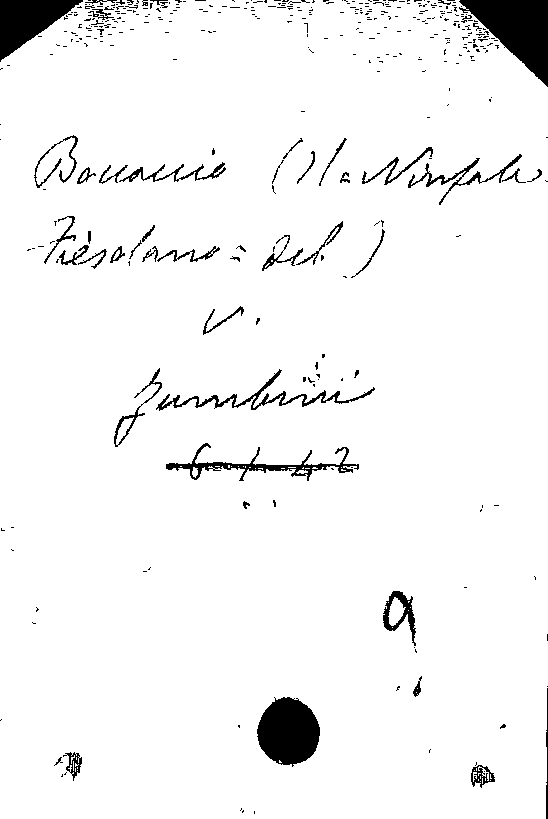 Boccaccio (Il = Ninfale
Fiesolano = del )
v.
Zumbini
6 / 42
a